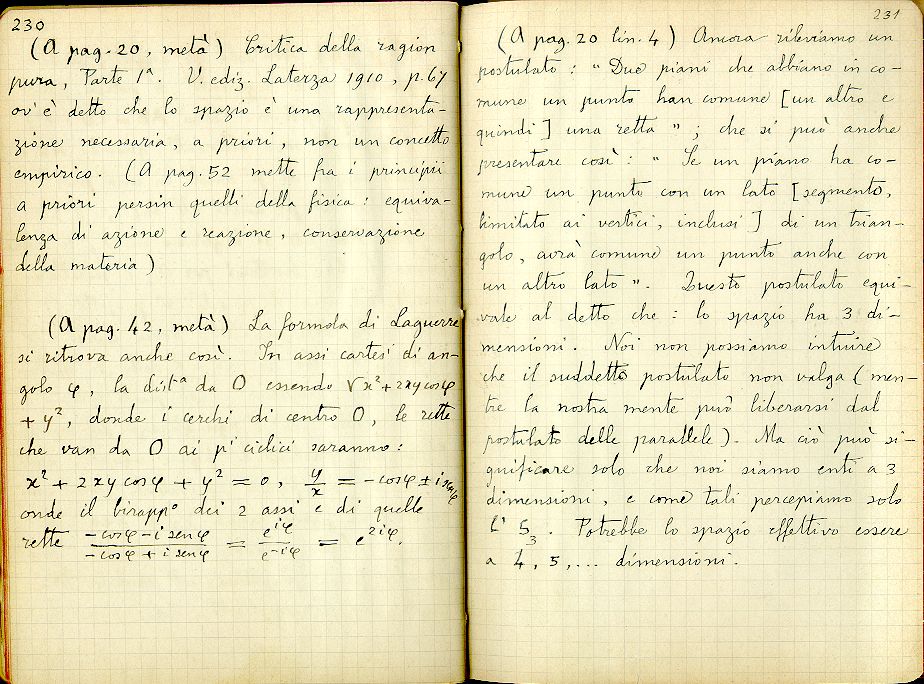 230
(A pag. 20, metà) Critica della ragion
pura, Parte 1ª. V. ediz. Laterza 1910, p. 67
ov'è detto che lo spazio è una rappresenta-
zione necessaria, a priori, non un concetto
empirico. (A pag. 52 mette fra i principii
a priori persin quelli della fisica: equiva-
lenza di azione e reazione, conservazione
della materia)
(A pag. 42, metà) La formola di Laguerre
si ritrova anche così. In assi cartesi di an-
golo φ, la distª da O essendo √x²+2xycosφ
+y², donde i cerchi di centro O, le rette
che van da O ai pⁱ ciclici saranno:
x² + 2xy cosφ + y² = 0, y/x = -cosφ ± i senφ
onde il birappº dei 2 assi e di quelle
rette (-cosφ - i senφ)/(-cosφ + i senφ) = e^{iφ}/e^{-iφ} = e^{2iφ}.
231
(A pag. 20 lin. 4) Ancora rileviamo un
postulato: "Due piani che abbiano in co-
mune un punto han comune [un altro e
quindi] una retta"; che si può anche
presentare così: "Se un piano ha co-
mune un punto con un lato [segmento,
limitato ai vertici, inclusi] di un trian-
golo, avrà comune un punto anche con
un altro lato". Questo postulato equi-
vale al detto che: lo spazio ha 3 di-
mensioni. Noi non possiamo intuire
che il suddetto postulato non valga (men-
tre la nostra mente può liberarsi dal
postulato delle parallele). Ma ciò può si-
gnificare solo che noi siamo enti a 3
dimensioni, e come tali percepiamo solo
l' S₃. Potrebbe lo spazio effettivo essere
a 4, 5, ... dimensioni.